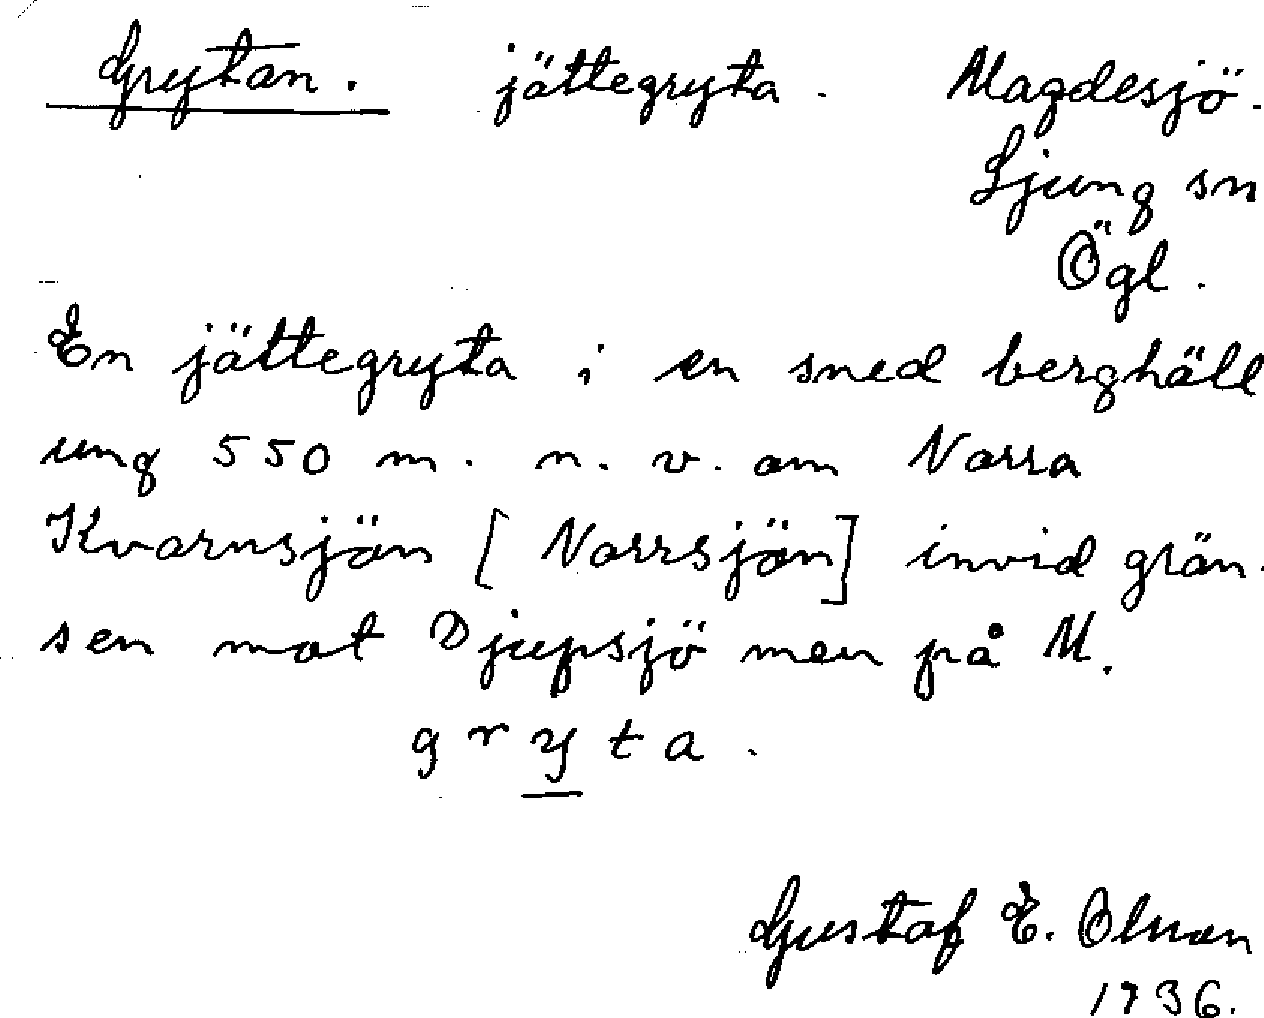 Grytan. jättegryta. Magdesjö.
Ljung sn
Ögl.
En jättegryta i en sned berghäll
ung 550 m. n. v. om Norra
Kvarnsjön [Norrsjön] invid grän-
sen mot Djupsjö men på M.
gryta.
Gustaf E. Olman
1936.